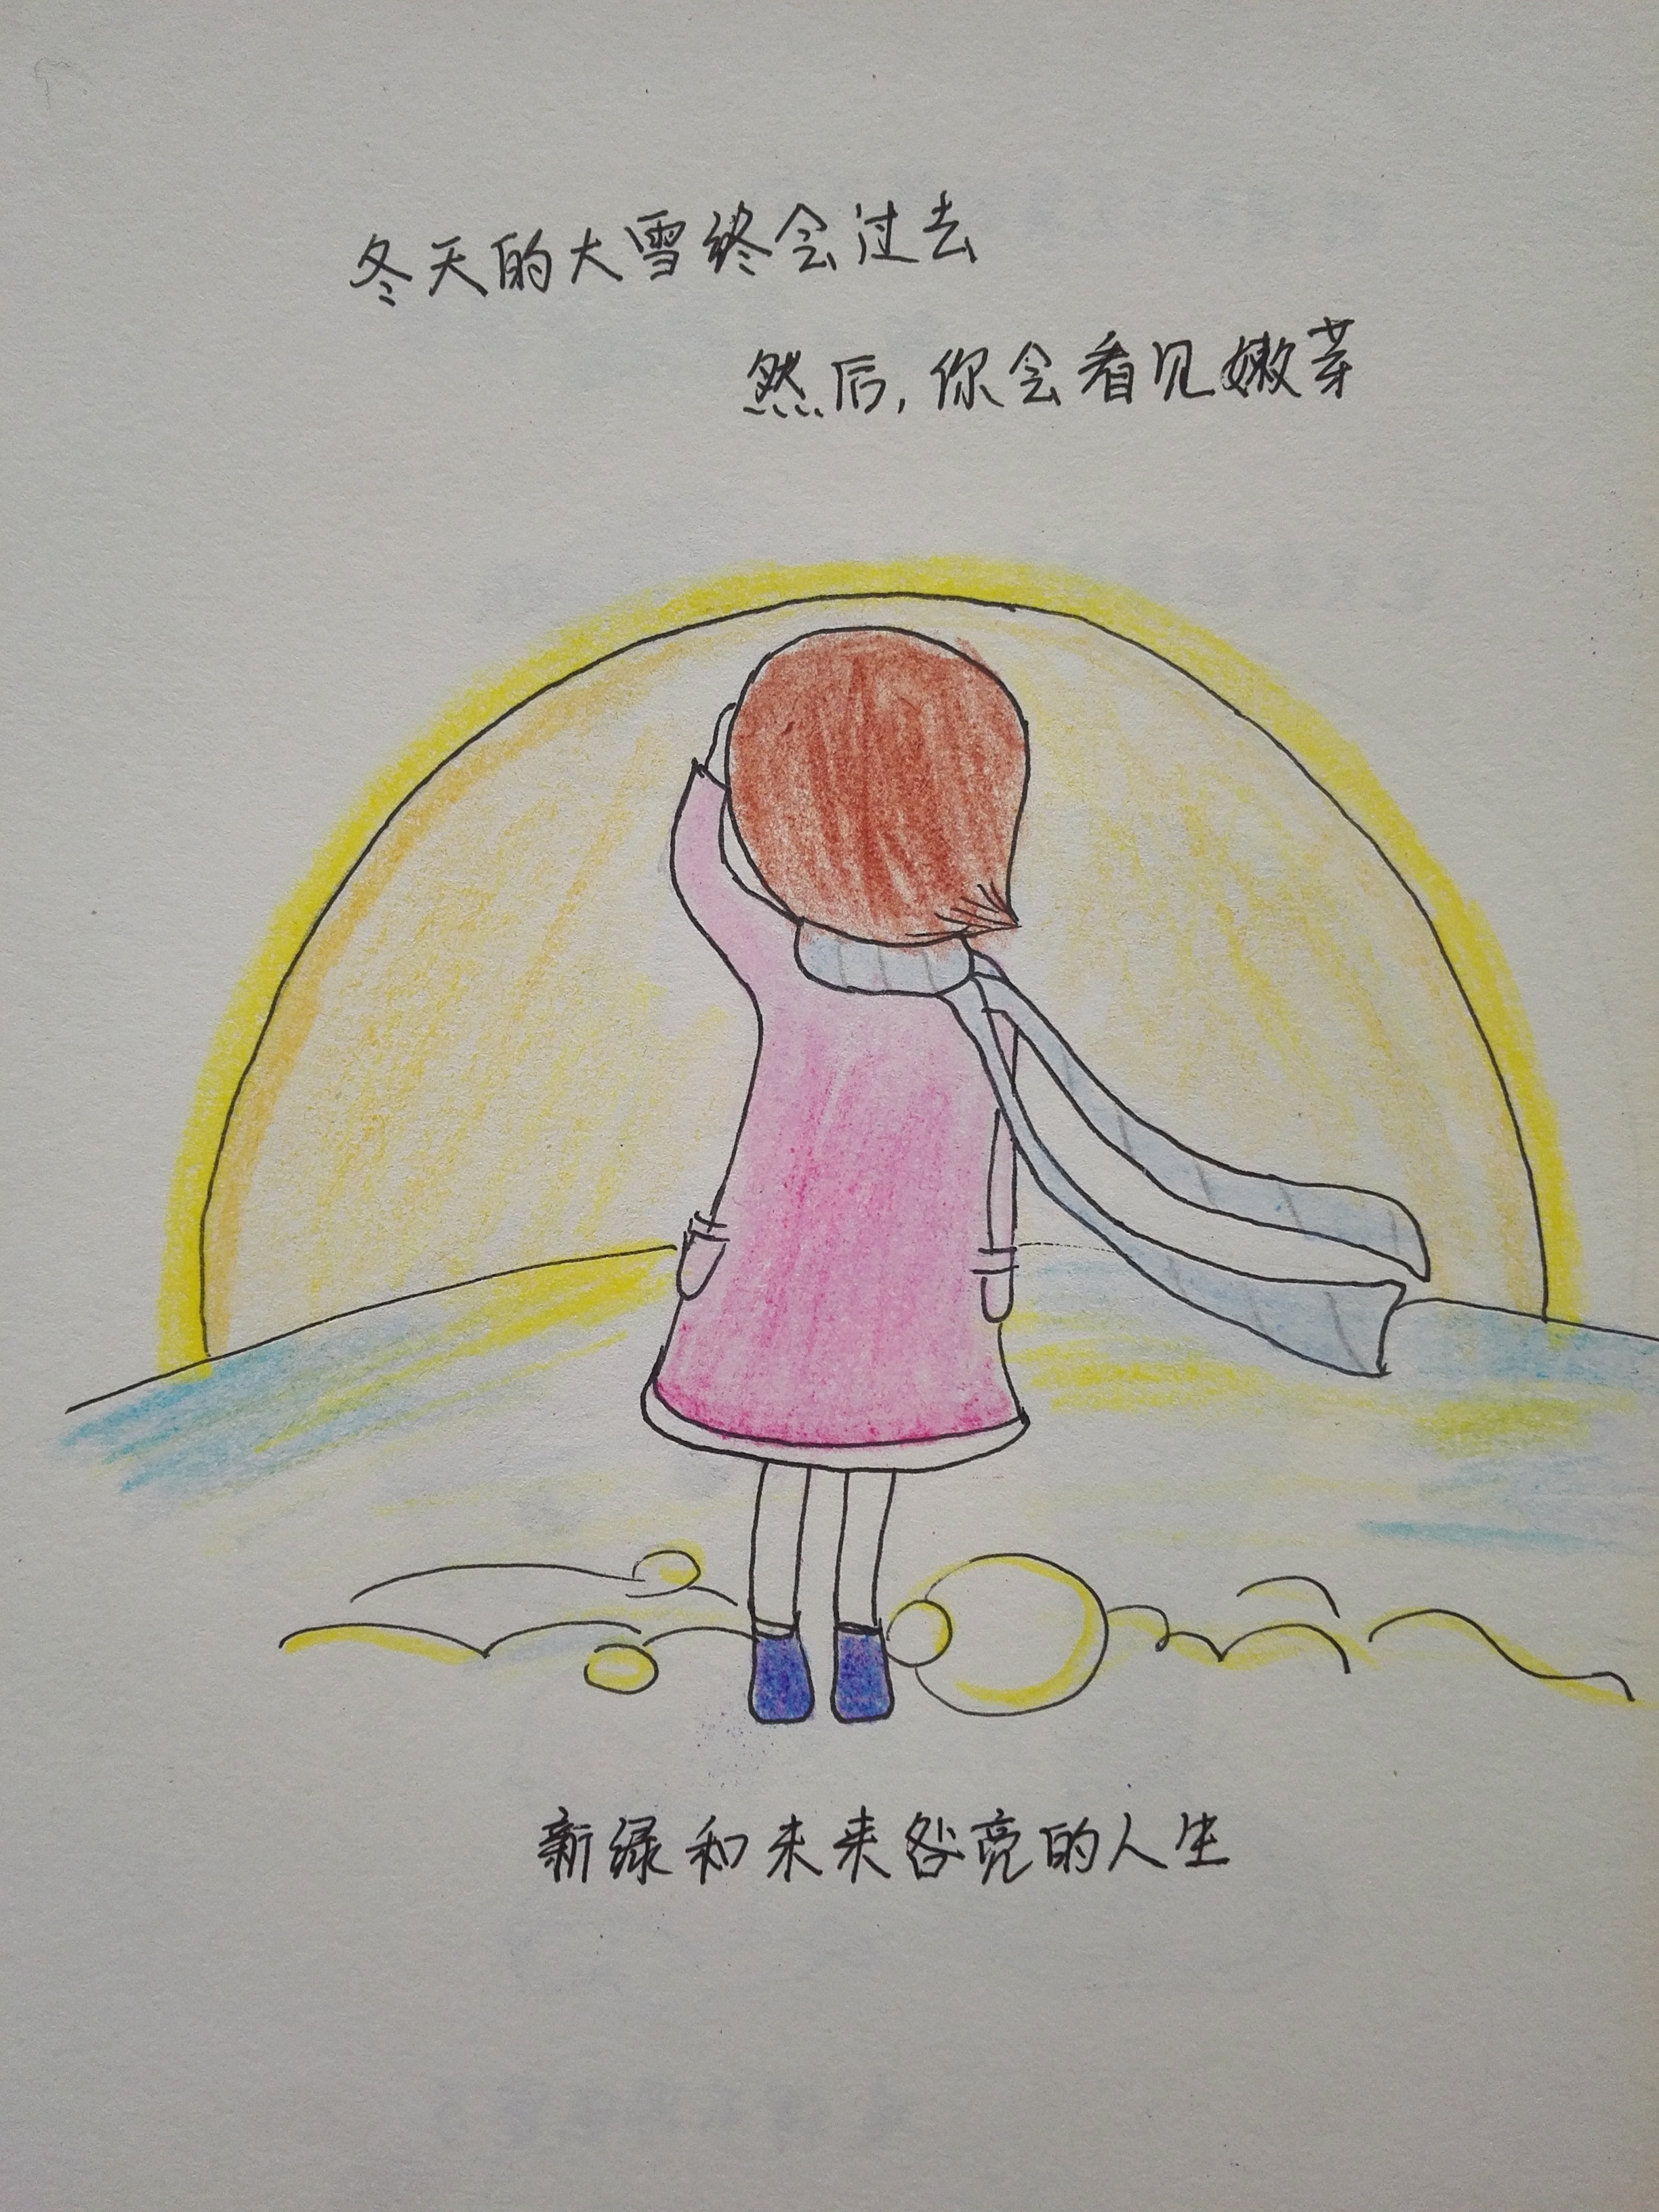 冬天的大雪终会过去
然后,你会看见嫩芽
新绿和未来咎亮的人生